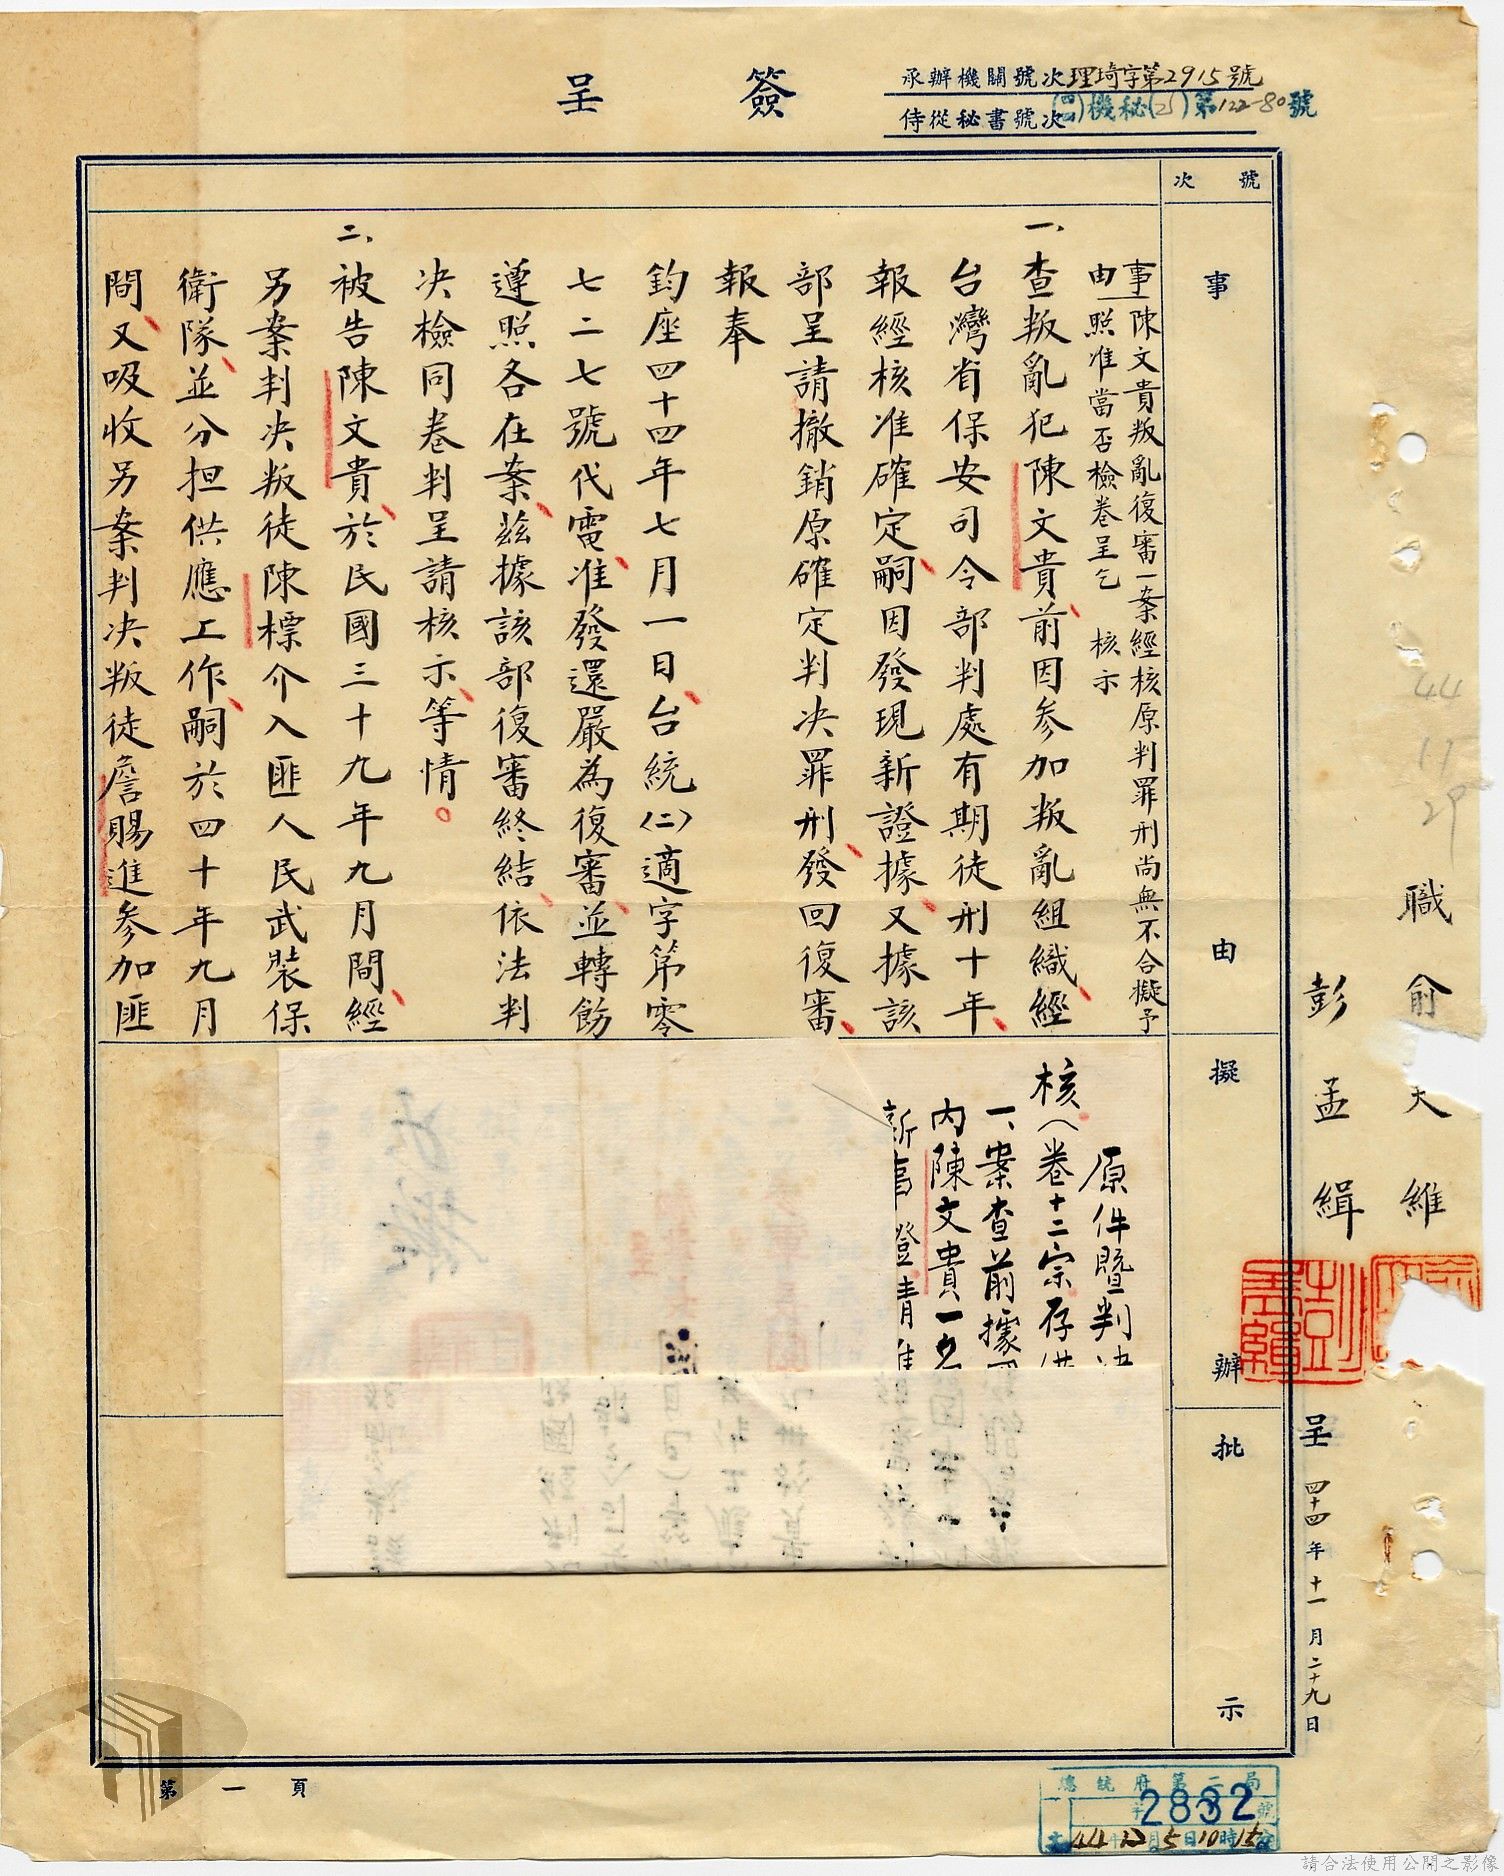 簽呈
承辦機關號次理琦字第2915號
侍從秘書號次(四四)機秘(乙)第122-80號
職俞大維
彭孟緝
呈 四十四年十一月二十九日
44
11
29
號次
事由
擬辦
批示
事由 陳文貴叛亂復審一案經核原判罪刑尚無不合擬予
照准當否檢卷呈乞 核示
一、查叛亂犯陳文貴前因參加叛亂組織經
台灣省保安司令部判處有期徒刑十年
報經核准確定嗣因發現新證據又據該
部呈請撤銷原確定判決罪刑發回復審
報奉
鈞座四十四年七月一日台統(二)適字第零
七二七號代電准發還嚴為復審並轉飭
遵照各在案茲據該部復審終結依法判
決檢同卷判呈請核示等情。
二、被告陳文貴於民國三十九年九月間經
另案判決叛徒陳標介入匪人民武裝保
衛隊並分担供應工作嗣於四十年九月
間又吸收另案判決叛徒詹賜進參加匪
原件暨判
核(卷十二宗存
一、案查前據
內陳文貴一
第一頁
總統府第二局
2832
44 12月5日10時15分
請合法使用公開之影像